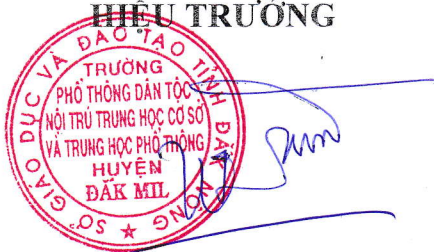 HIỆU TRƯỞNG
SỞ GIÁO DỤC VÀ ĐÀO TẠO TỈNH ĐĂK NÔNG
TRƯỜNG
PHỔ THÔNG DÂN TỘC
NỘI TRÚ TRUNG HỌC CƠ SỞ
VÀ TRUNG HỌC PHỔ THÔNG
HUYỆN
ĐĂK MIL